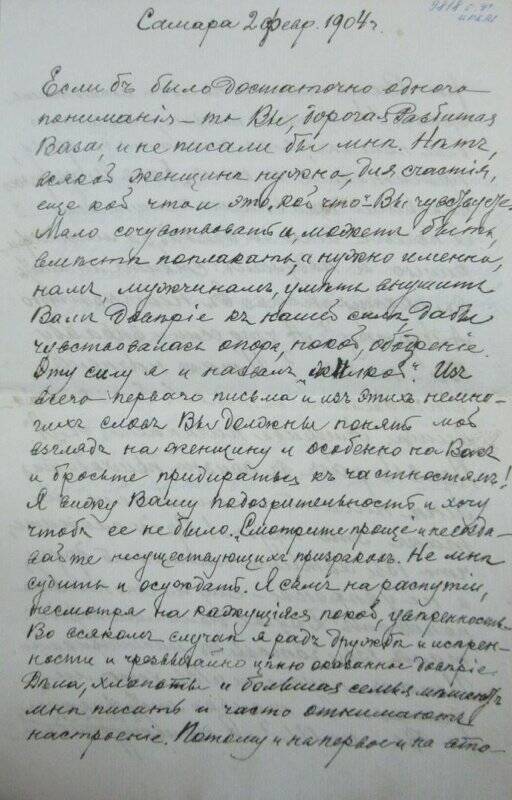 Самара 2 февр. 1904 г.
Если бъ было достаточно одного
пониманія – то Вы, дорогая Разбитая
Ваза, и не писали бы мнѣ. Нѣтъ,
всякой женщинѣ нужна, для счастія,
еще кой что и это кой что Вы чувствуете.
Мало сочувствовать и, можетъ быть,
вмѣстѣ поплакать, а нужно именно,
намъ, мужчинамъ, умѣть внушить
Вамъ довѣріе къ нашей силѣ, дабы
чувствовалась опора, покой, ободреніе.
Эту силу я и назвалъ „жилкой". Изъ
всего перваго письма и изъ этихъ немно-
гихъ словъ Вы должны понять мой
взглядъ на женщину и особенно на Васъ
и бросьте придираться къ частностямъ!
Я вижу Вашу подозрительность и хочу
чтобы ее не было. Смотрите проще и не созда-
вайте несуществующихъ призраковъ. Не мнѣ
судить и осуждать. Я самъ на распутіи,
несмотря на кажущійся покой, увѣренность.
Во всякомъ случаѣ я радъ дружбѣ и искрен-
ности и чрезвычайно цѣню оказанное довѣріе.
Дѣла, хлопоты и большая семья мѣшаютъ
мнѣ писать и часто отнимаютъ
настроеніе. Потому и на первое и на это